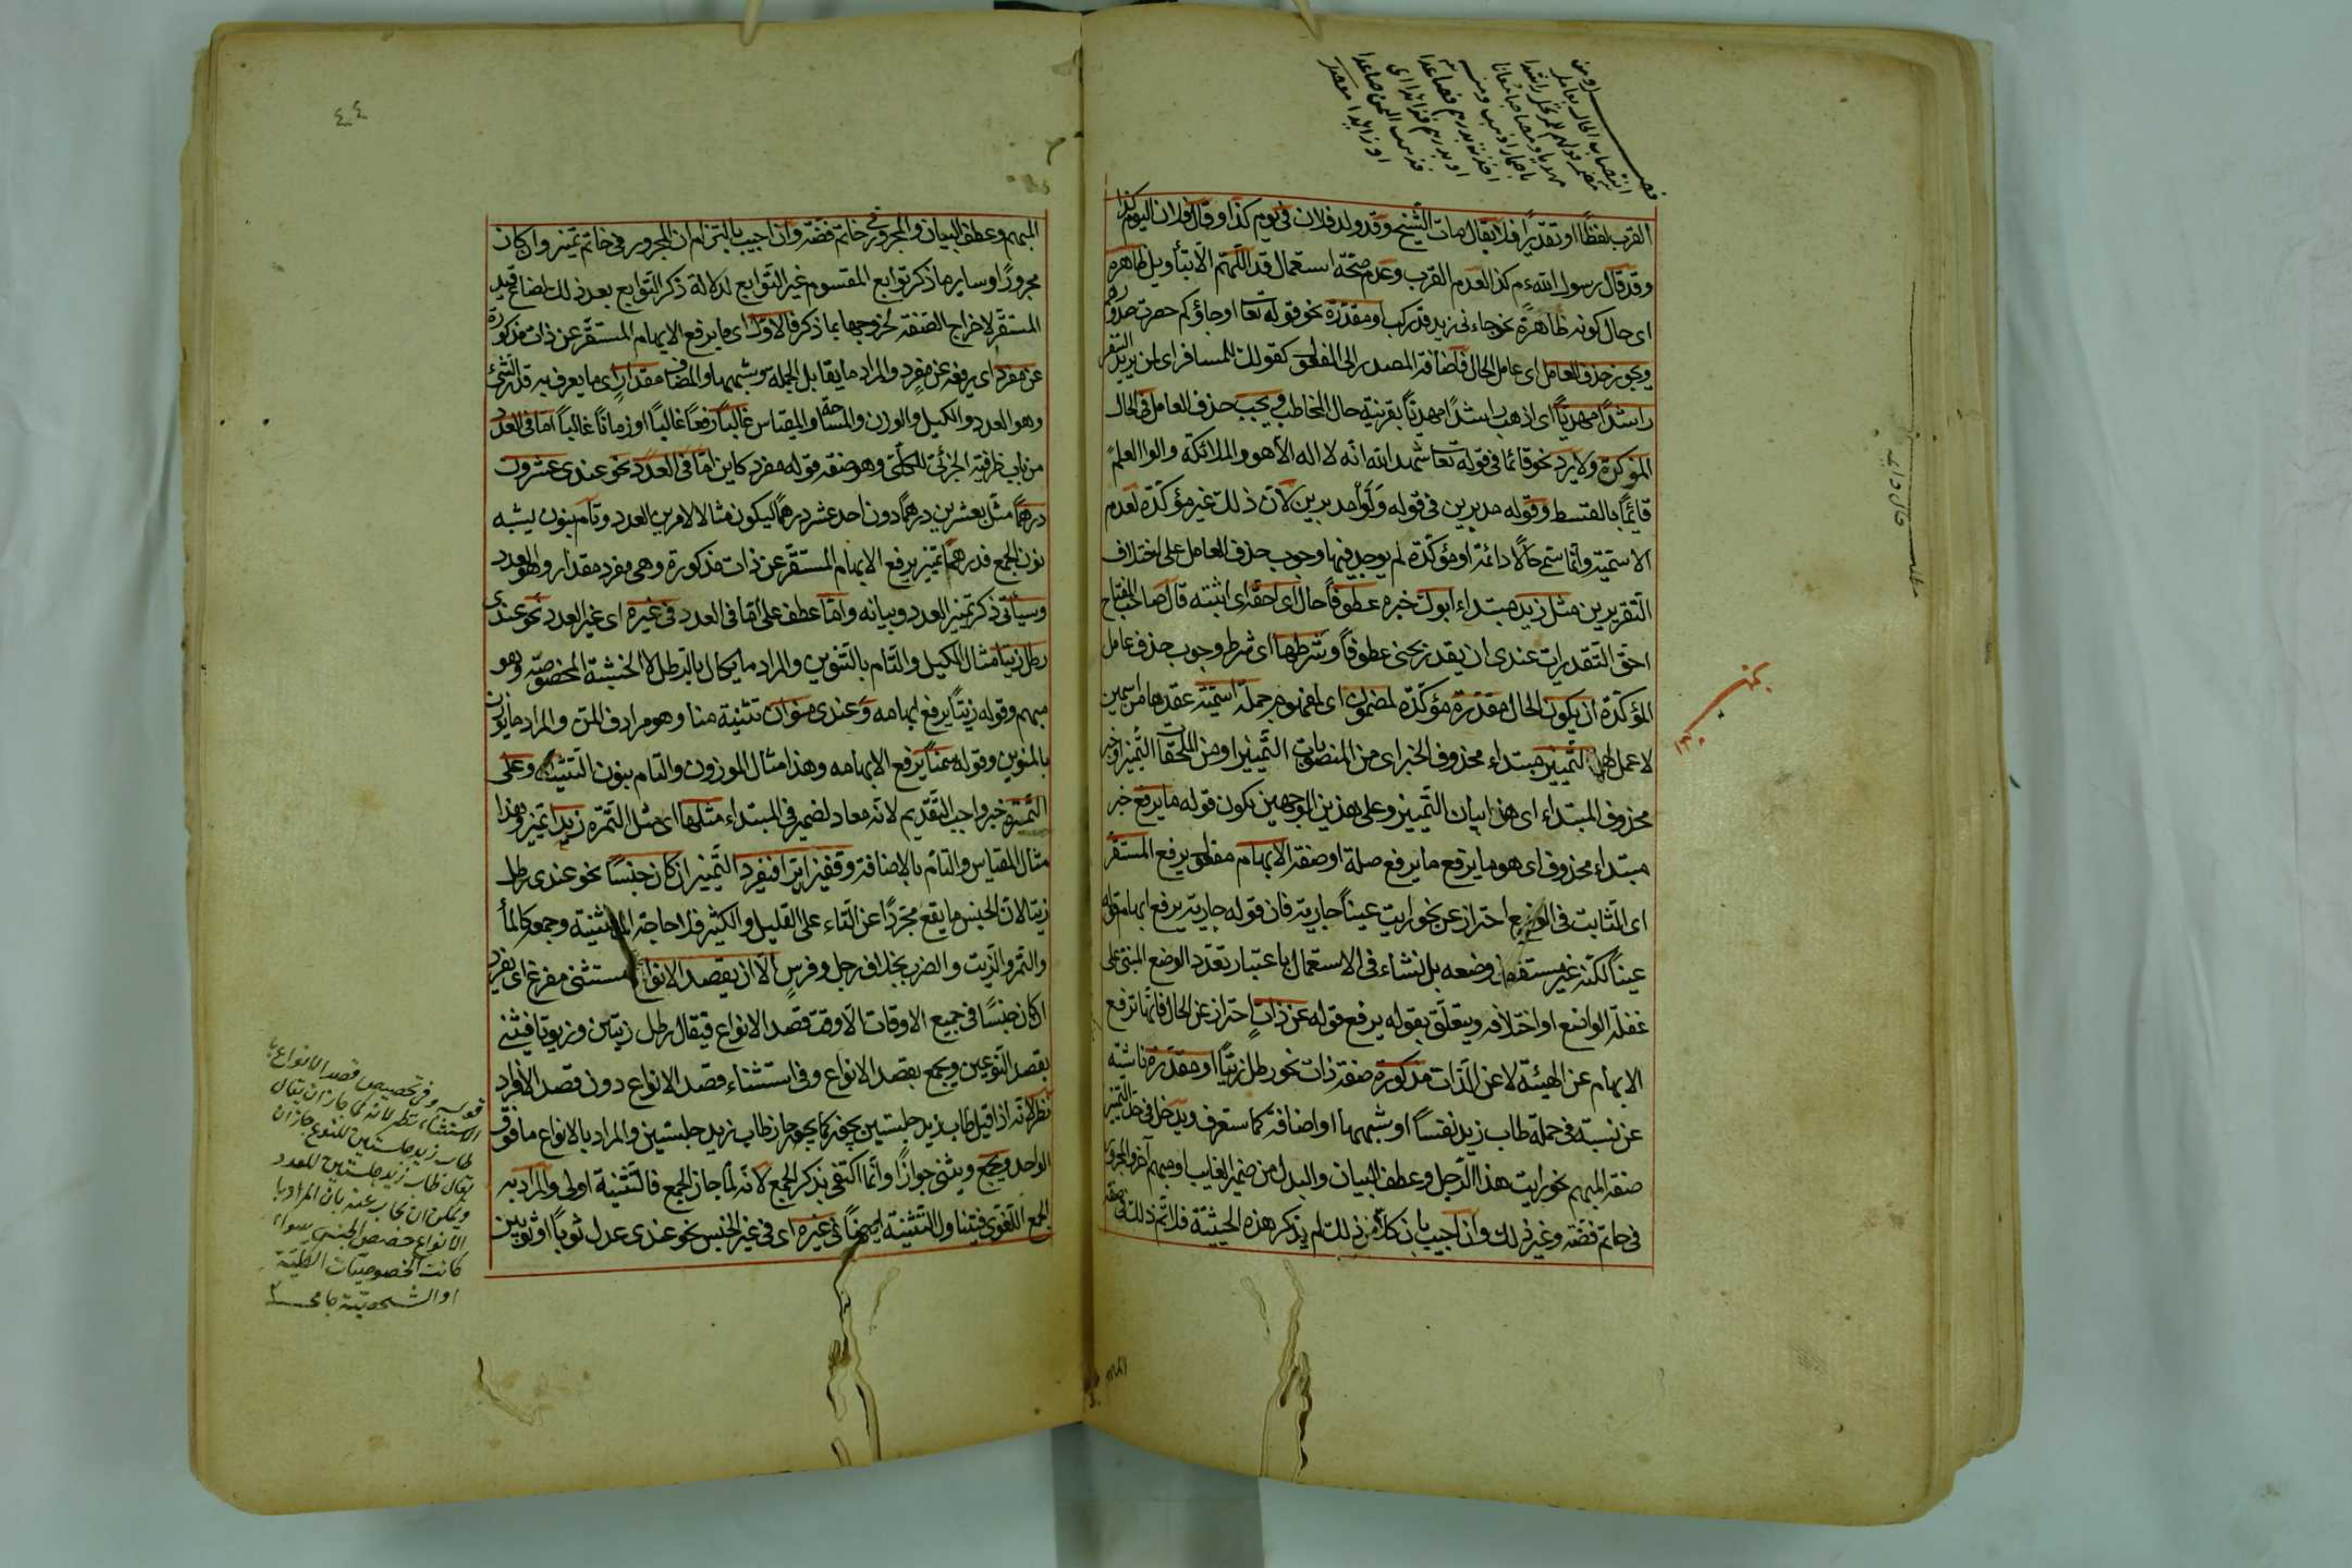 القرب لفظًا او تقديرًا فلا يقال مات الشيخ وقد ولد فلان في يوم كذا وقال فلان اليوم كذا
وقد قال رسول الله م كذا لعدم القرب وعدم صحّة استعمال قد اللّهمّ الّا بتأويل ظاهرة
اى حال كونه ظاهرة نحو جاءنى زيد قد ركب او مقدّرة نحو قوله تعا او جاؤكم حصرت صدورهم
ويجوز حذف العامل اى عامل الحال فاضافة المصدر الى المفعول كقولك للمسافر اى لمن يريد السّفر
راشدًا مهديًّا اى اذهب راشدًا مهديًّا بقرينة حال المخاطب ويجب حذف العامل فى الحال
المؤكدة ولا يرد نحو قائما فى قوله تعا شهد الله انّه لا اله الّا هو والملائكة والوا العلم
قائمًا بالقسط وقوله مدبرين فى قوله ولّوا مدبرين لانّ ذلك غير مؤكدة لعدم
الاسميّة وانّما سمّى حالًا دائمة او مؤكّدة لم يوجد فيها وجوب حذف العامل على اختلاف
التّقريرين مثل زيد مبتداء ابوك خبره عطوفًا حال اى احقّه اى اثبته قال صاحب المفتاح
احقّ التّقديرات عندى ان يقدر يحنى عطوفًا وشرطها اى شرط وجوب حذف عامل
المؤكّدة ان يكون الحال مقدّرة مؤكّدة لمضمون اى لمفهوم جملة اسميّة عقدها من اسمين
لا عمل لهما التّمييز مبتداء محذوف الخبر اى من المنصوبات التّمييز او من الملحقات التّمييز او خبر
محذوف المبتداء اى هذا بيان التّمييز وعلى هذين الوجهين يكون قوله ما يرفع خبر
مبتداء محذوف اى هو ما يرفع ما يرفع صلة او صفة الابهام مفعول يرفع المستقرّ
اى الثّابت فى الوضع احتراز عن نحو رايت عينًا جارية فانّ قوله جارية يرفع ابهام قوله
عينًا لكنّه غير مستقرّ فى وضعه بل نشاء فى الاستعمال باعتبار تعدّد الوضع المبنى على
غفلة الواضع او اختلافه ويتعلّق بقوله يرفع قوله عن ذات احتراز عن الحال فانّها ترفع
الابهام عن الهيئة لا عن الذّات مذكورة صفة ذات نحو رطل زيتًا او مقدّرة ناشئة
عن نسبة فى جملة طاب زيد نفسًا او شبهها او اضافة كما ستعرف ويدخل فى حدّ التّمييز
صفة المبهم نحو رايت هذا الرّجل وعطف البيان والبدل من ضمير الغايب او مبهم آخر والمجرور
فى خاتم فضّة وغير ذلك وان اجيب بان كلًّا من ذلك لم يذكر هذه الحيثيّة فلا تمّ ذلك فى صفة
المبهم وعطف البيان والمجرور فى خاتم فضّة وان اجيب بالتزام ان المجرور فى خاتم تميز وان كان
مجرورًا وساير ما ذكر توابع المقسوم غير التّوابع لدلالة ذكر التّوابع بعد ذلك لضاع قيد
المستقرّ لاخراج الصّفة لخروجها بما ذكر فالاوّل اى ما يرفع الابهام المستقرّ عن ذات مذكورة
عن مفرد اى يرفعه عن مفرد والمراد ما يقابل الجملة وشبهها والمضاف مقدار اى ما يعرف به قدر الشّئ
وهو العدد والكيل والوزن والمساحة والمقياس غالبًا رفعًا غالبًا او زمانًا غالبًا امّا فى العدد
من باب ظرفية الجزئى للكلّى وهو صفة قوله مفرد كاين امّا فى العدد نحو عندى عشرون
درهمًا مثّل بعشرين درهمًا دون احد عشر درهمًا ليكون مثالا لامرين العدد وتام بنون يشبه
نون الجمع فدرهمًا تميز يرفع الابهام المستقرّ عن ذات مذكورة وهى مفرد مقدار وهو العدد
وسيأتى ذكر تميز العدد وبيانه وامّا عطف على امّا فى العدد فى غيره اى غير العدد نحو عندى
رطل زيتا مثال الكيل والتّام بالتّنوين والمراد ما يكال بالرّطل لا الخشبة المخصوصة وهو
مبهم وقوله زيتًا يرفع ابهامه وعندى منوان تثنية منا وهو مرادف المنّ والمراد ما يوزن
بالمنوين وقوله سمنًا يرفع الابهامه وهذا مثال الموزون والتام بنون التثنية وعلى
التمرة خبر واجب التّقديم لانّه معاد لضمير فى المبتداء مثلها اى مثل التّمرة زبدا تميز وهذا
مثال المقياس والتام بالاضافة وقفيزان برا فيفرد التّميز ان كان جنسًا نحو عندى رطل
زيتا لانّ الجنس ما يقع مجرّدًا عن التّاء على القليل والكثير فلا حاجة الى تثنيته وجمعه كالمأ
والتّمر والزّيت والضرب بخلاف رجل وفرس الّا ان يقصد الانواع مستثنى مفرغ اى يفرد
ان كان جنسًا فى جميع الاوقات الّا وقت قصد الانواع فيقال رطل زيتين وزيوتا فيثنى
بقصد النّوعين ويجمع بقصد الانواع وفى استثناء قصد الانواع دون قصد الافراد
نظر لانّه اذا قيل طاب زيد جلستين يجوز كما يجوز طاب زيد جلستين والمراد بالانواع ما فوق
الواحد ويجمع ويثنى جوازًا وانّما اكتفى بذكر الجمع لانّه لمّا جاز الجمع فالتّثنية اولى والمراد به
الجمع اللّغوى فيتناول التّثنية ايضًا فى غيره اى فى غير الجنس نحو عندى عدل ثوبًا او ثوبين
قوله وفى تخصيص قصد الانواع با
لاستثناء نظر لانه كما جاز ان يقال
طاب زيد جلستين للنوع جاز ان
يقال طاب زيد جلستين للعدد
ويمكن ان يجاب عنه بان المراد با
لانواع حصص الجنس سواء
كانت الخصوصيّات الكليّة
او الشخصيّة جامى
٤٤